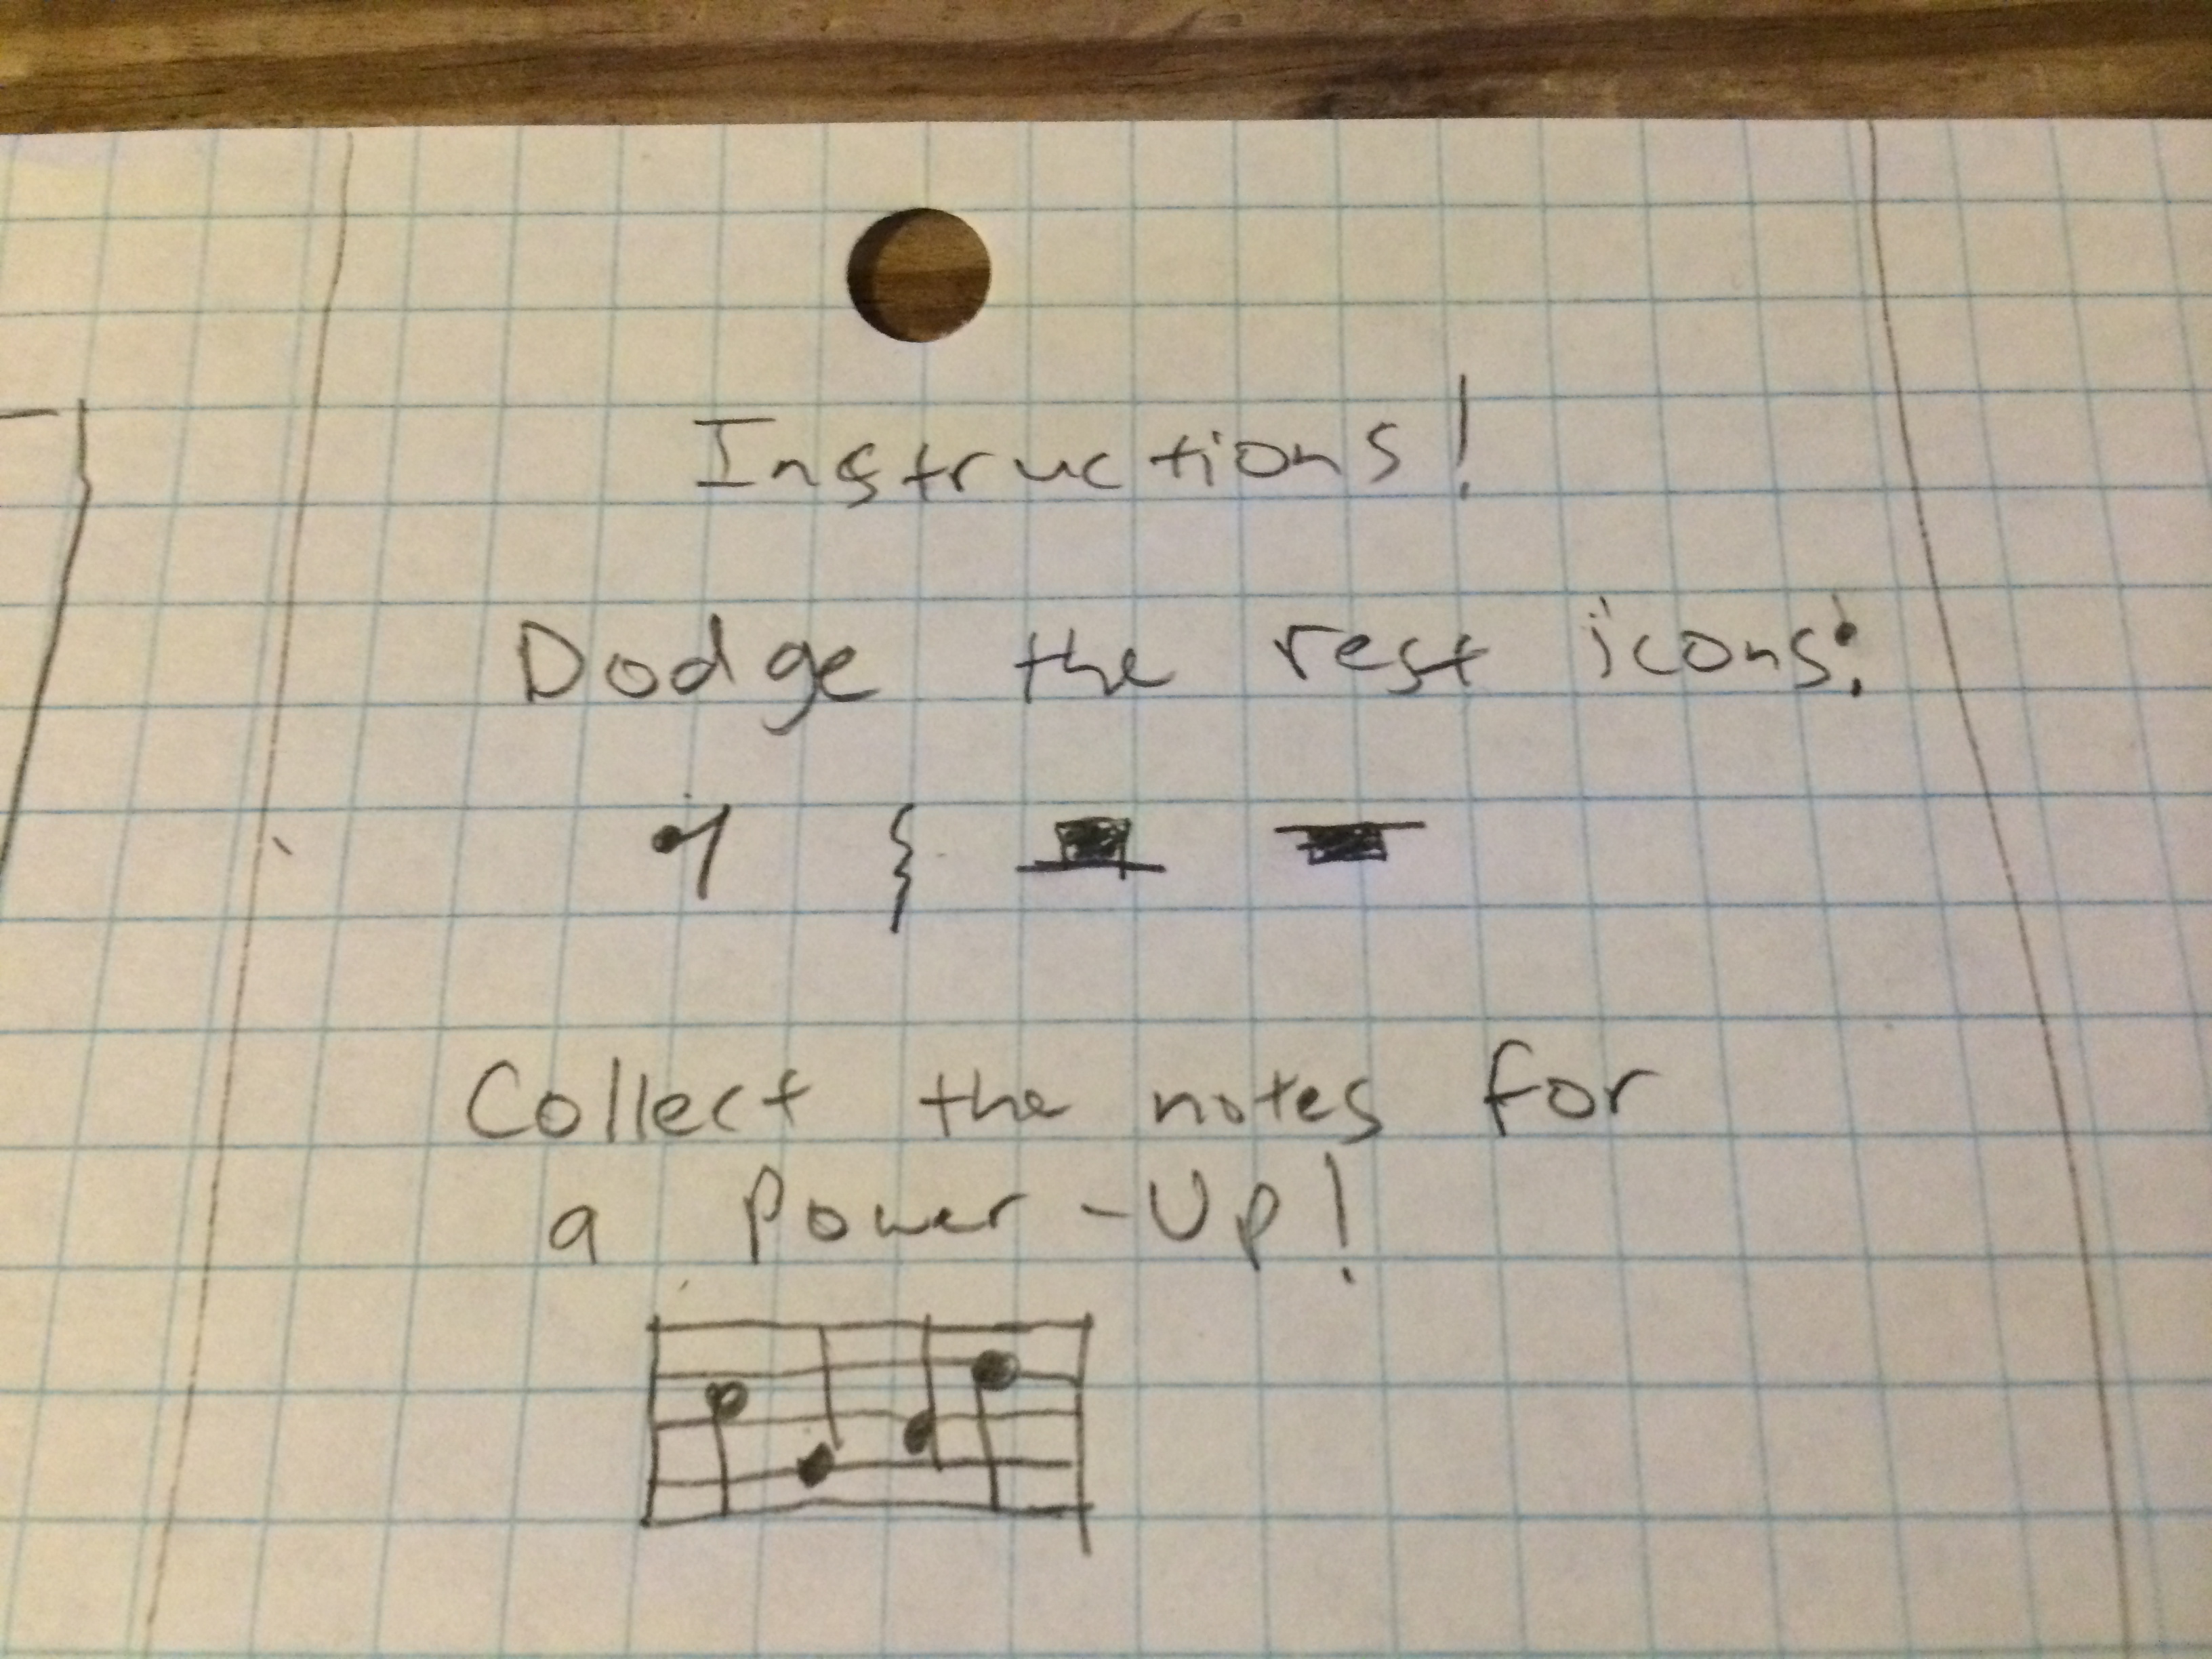 Instructions!
Dodge the rest icons:
Collect the notes for
a Power-Up!